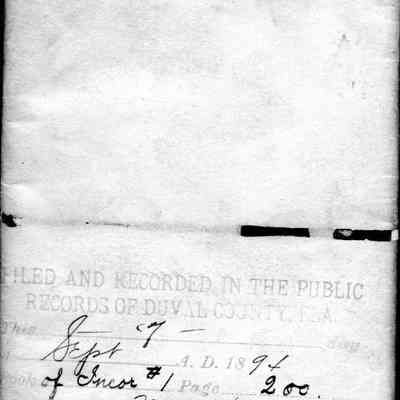 FILED AND RECORDED IN THE PUBLIC
RECORDS OF DUVAL COUNTY, FLA.
This 7 day
Sept A. D. 1894
Book of Incor #1 Page 200.